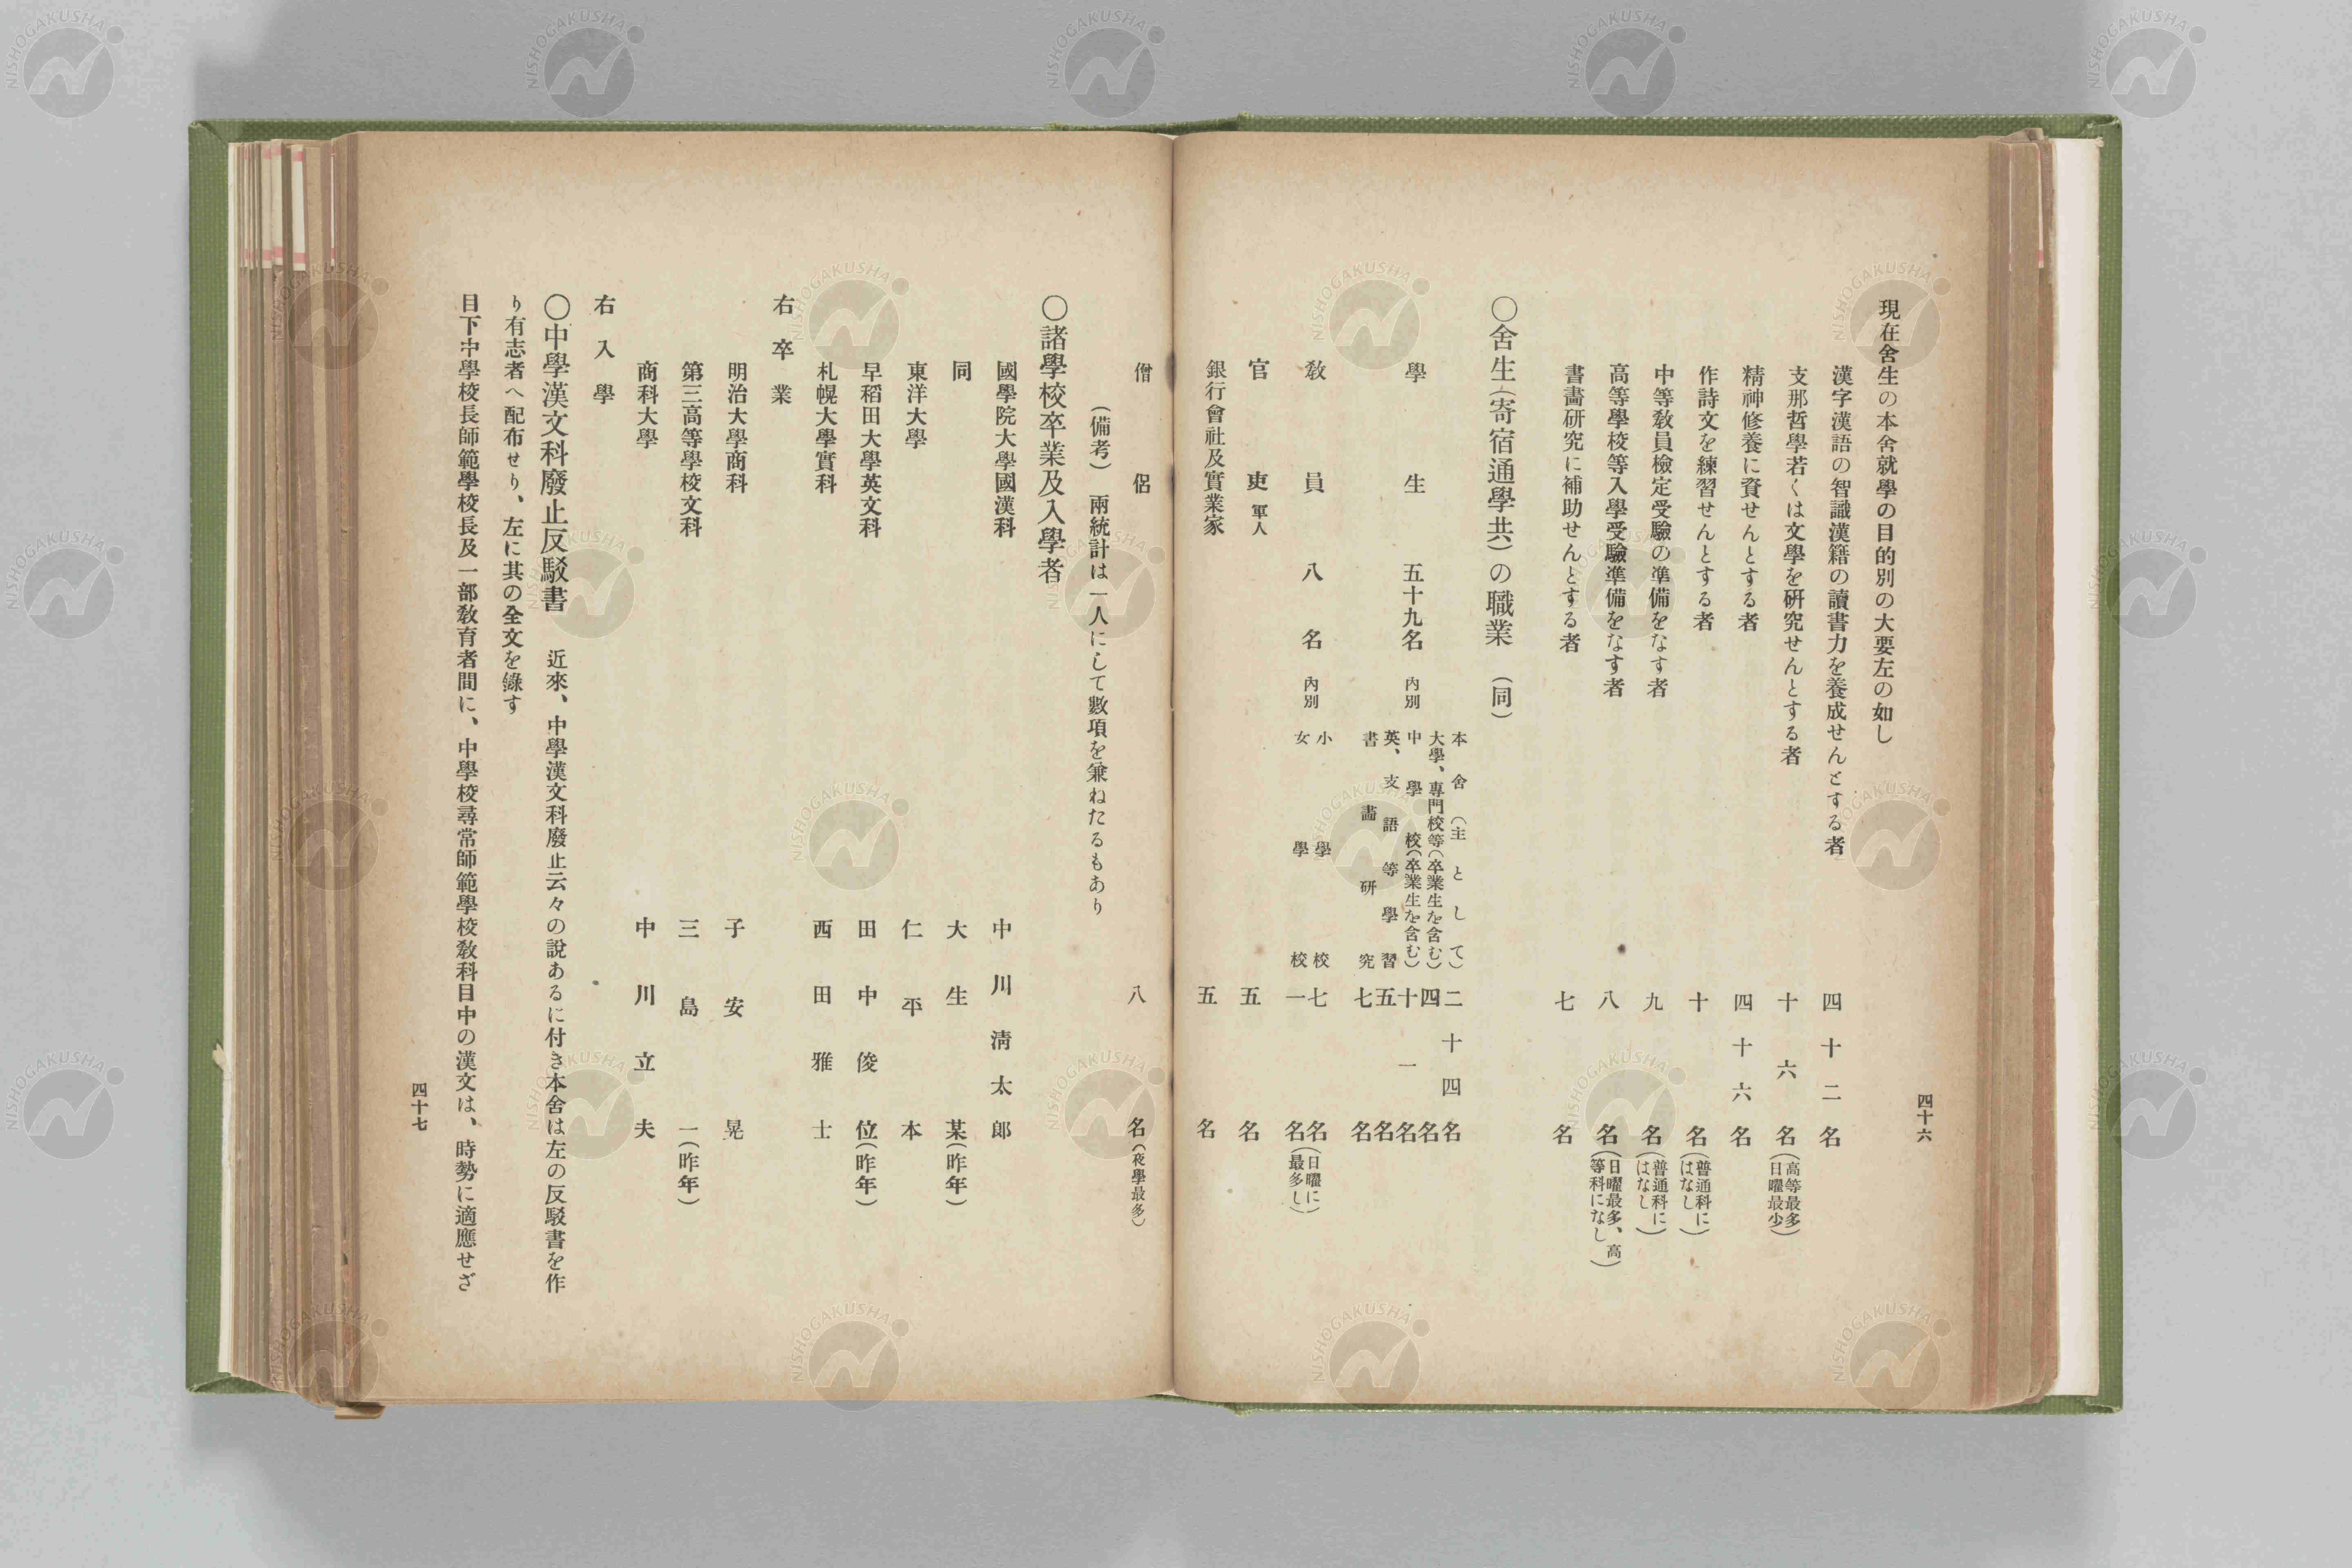 四十六
現在舍生の本舍就學の目的別の大要左の如し
漢字漢語の智識漢籍の讀書力を養成せんとする者 四十二名
支那哲學若くは文學を硏究せんとする者 十六名(高等最多日曜最少)
精神修養に資せんとする者 四十六名
作詩文を練習せんとする者 十名(普通科にはなし)
中等敎員檢定受驗の準備をなす者 九名(普通科にはなし)
高等學校等入學受驗準備をなす者 八名(日曜最多、高等科になし)
書畵硏究に補助せんとする者 七名
〇舍生(寄宿通學共)の職業(同)
學生 五十九名 內別
本舍(主として) 二十四名
大學、專門校等(卒業生を含む) 四名
中學校(卒業生を含む) 十一名
英、支語等學習 五名
書畵硏究 七名
敎員 八名 內別
小學校 七名(日曜に最多し)
女學校 一名
官吏軍人 五名
銀行會社及實業家 五名
僧侶 八名(夜學最多)
(備考) 兩統計は一人にして數項を兼ねたるもあり
〇諸學校卒業及入學者
國學院大學國漢科 中川淸太郞
同 大生某(昨年)
東洋大學 仁平本
早稻田大學英文科 田中俊位(昨年)
札幌大學實科 西田雅士
右卒業
明治大學商科 子安晃
第三高等學校文科 三島一(昨年)
商科大學 中川立夫
右入學
〇中學漢文科廢止反駁書 近來、中學漢文科廢止云々の說あるに付き本舍は左の反駁書を作
り有志者へ配布せり、左に其の全文を錄す
目下中學校長師範學校長及一部敎育者間に、中學校尋常師範學校敎科目中の漢文は、時勢に適應せざ
四十七
NISHOGAKUSHA